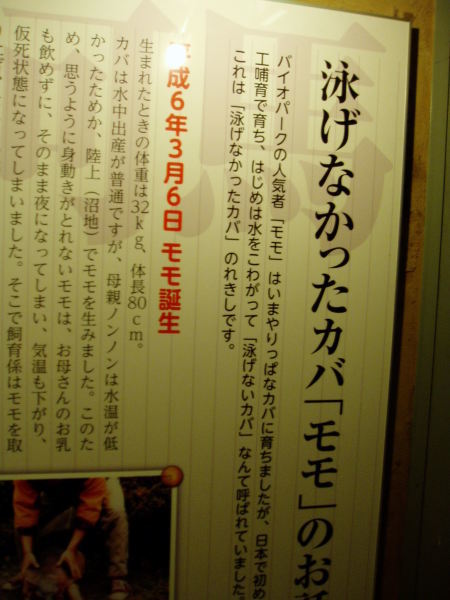 泳げなかったカバ「モモ」のお話
バイオパークの人気者「モモ」はいまやりっぱなカバに育ちましたが、日本で初め
工哺育で育ち、はじめは水をこわがって「泳げないカバ」なんて呼ばれていました。
これは「泳げなかったカバ」のれきしです。
平成6年3月6日 モモ誕生
生まれたときの体重は32kg、体長80cm。
カバは水中出産が普通ですが、母親ノンノンは水温が低
かったためか、陸上（沼地）でモモを生みました。このた
め、思うように身動きがとれないモモは、お母さんのお乳
も飲めずに、そのまま夜になってしまい、気温も下がり、
仮死状態になってしまいました。そこで飼育係はモモを取